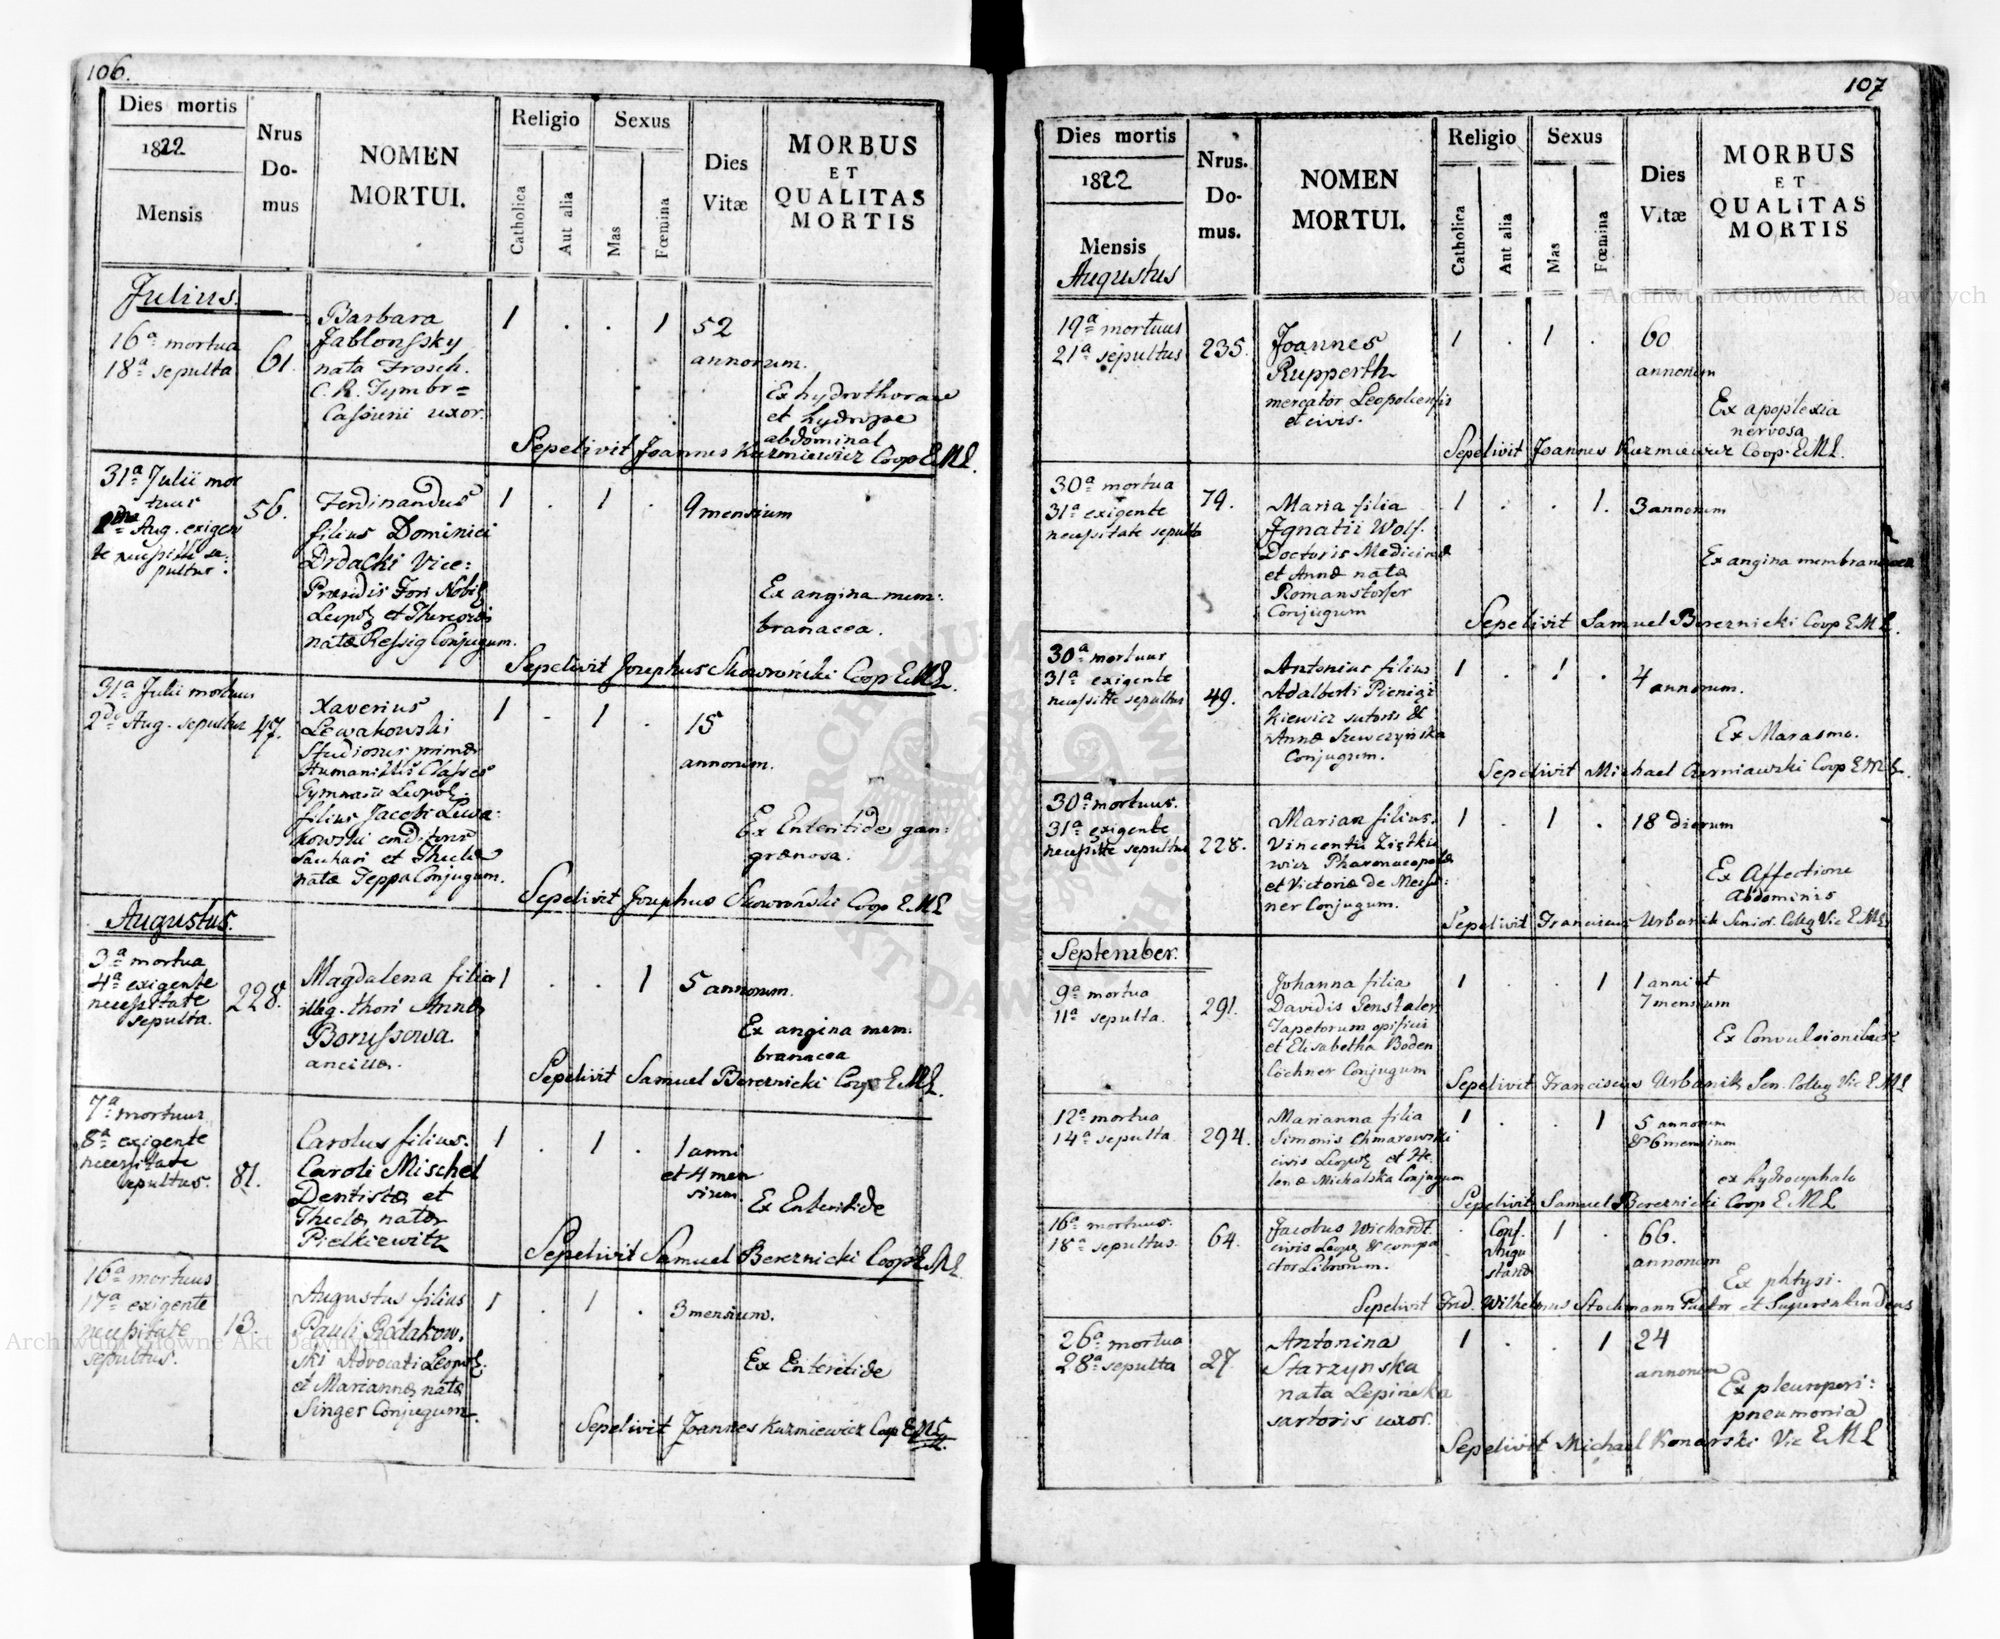 106.
Dies mortis
1822
Mensis
Nrus
Do-
mus
NOMEN
MORTUI.
Religio
Catholica
Aut alia
Sexus
Mas
Fœmina
Dies
Vitæ
MORBUS
ET
QUALITAS
MORTIS
Julius.
16ª mortua
18ª sepulta
61.
Barbara
Jablonssky
nata Frosch.
C. R.
uxor.
1 . . 1
52
annorum.
Ex hydrothorace
et hydrope
abdominal
Sepelivit Joannes Kuzmiewicz Coop E.M.L.
31ª Julii mor
tuus
Aug. exigen
te
pultus.
56.
Ferdinandus
filius Dominici
Drdacki Vice:
Præsidis Fori Nobil
Leopol et Theresiæ
natæ Ressig Conjugum.
1 . 1 .
9 mensium
Ex angina mem:
branacea.
Sepelivit Josephus Skowroński Coop E.M.L.
31ª Julii mortuus
2da Aug. sepultus
47.
Xaverius
Lewakowski
Studiosus primæ
Humanittis Classes
Gymnasii Leopol.
filius Jacobi Lewa:
kowski
et Theclæ
natæ Teppa Conjugum.
1 - 1 .
15
annorum.
Ex Enteritide gan:
grænosa.
Sepelivit Josephus Skowroński Coop E.M.L
Augustus.
3ª mortua
4ª exigente
necessitate
sepulta.
228.
Magdalena filia
illeg. thori Annæ
Borussowa
ancillæ.
1 . . 1
5 annorum.
Ex angina mem:
branacea
Sepelivit Samuel Bereznicki Coop E.M.L.
7ª mortuus
8ª exigente
necessitate
sepultus.
81.
Carolus filius.
Caroli Mischel
Dentistæ et
Theclæ natæ
Pielkiewitz
1 . 1 .
1 anni
et 4 men
sium.
Ex Enteritide
Sepelivit Samuel Bereznicki Coop E.M.L.
16ª mortuus
17ª exigente
necessitate
sepultus.
13.
Augustus filius
Pauli Rodakow.
ski Advocati Leopol.
et Mariannæ natæ
Singer Conjugum.
1 . 1 .
3 mensium.
Ex Enteritide
Sepelivit Joannes Kuzmiewicz Coop E.M.L.
107
Dies mortis
1822
Mensis
Augustus
Nrus.
Do-
mus.
NOMEN
MORTUI.
Religio
Catholica
Aut alia
Sexus
Mas
Fœmina
Dies
Vitæ
MORBUS
ET
QUALITAS
MORTIS
19ª mortuus
21ª sepultus
235.
Joannes
Rupperth
mercator Leopoliensis
et civis.
1 . 1 .
60
annorum
Ex apoplexia
nervosa
Sepelivit Joannes Kuzmiewicz Coop. E.M.L.
30ª mortua
31ª exigente
necessitate sepulta
79.
Maria filia
Ignatii Wolf.
Doctoris Medicinæ
et Annæ natæ
Romanstorfer
Conjugum
1 . . 1.
3 annorum
Ex angina membranacea
Sepelivit Samuel Bereznicki Coop E.M.L.
30ª mortuus
31ª exigente
necessitte sepultus
49.
Antonius filius
Adalberti Pienigz
kiewicz sutoris &
Annæ Szewczyńska
Conjugum.
1 . 1 .
4
annorum.
Ex Marasmo.
Sepelivit Michael Czerniawski Coop E.M.L.
30ª mortuus.
31ª exigente
necessitte sepultus
228.
Marian filius.
Vincentii Ziętkie
wicz Pharmacopolæ
et Victoriæ de Meiss:
ner Conjugum.
1 . 1 .
18 dierum
Ex Affectione
Abdominis
Sepelivit Franciscus Urbanik Senior. Colleg Vic E.M.L.
September.
9ª mortua
11ª sepulta.
291.
Johanna filia
Davidis Senstaler
Tapetorum opificis
et Elisabetha Boden
löchner Conjugum
1 . . 1
1 anni et
7 mensium
Ex Convulsionibus
Sepelivit Franciscus Urbanik Sen. Colleg Vic E.M.L
12ª mortua
14ª sepulta.
294.
Marianna filia
Simonis Chmarowski
civis Leopol et He-
lenæ Michalska Conjugum
1 . . 1
5 annorum
& 6 mensium
ex hydrocephalo
Sepelivit Samuel Bereznicki Coop E.M.L
16ª mortuus.
18ª sepultus.
64.
Jacobus Wichardt
civis Leopol & compa
ctor Librorum.
. Conf.
Augu
stanæ
1 .
66.
annorum
Ex phtysi.
Sepelivit Frid. Wilhelmus Stockmann Pastor et Superintendens
26ª mortua
28ª sepulta
27.
Antonina
Starzynska
nata Lepinska
sartoris uxor.
1 . . 1
24
annorum
Ex pleuroperi:
pneumonia
Sepelivit Michael Konarski Vic E.M.L
Archiwum Główne Akt Dawnych